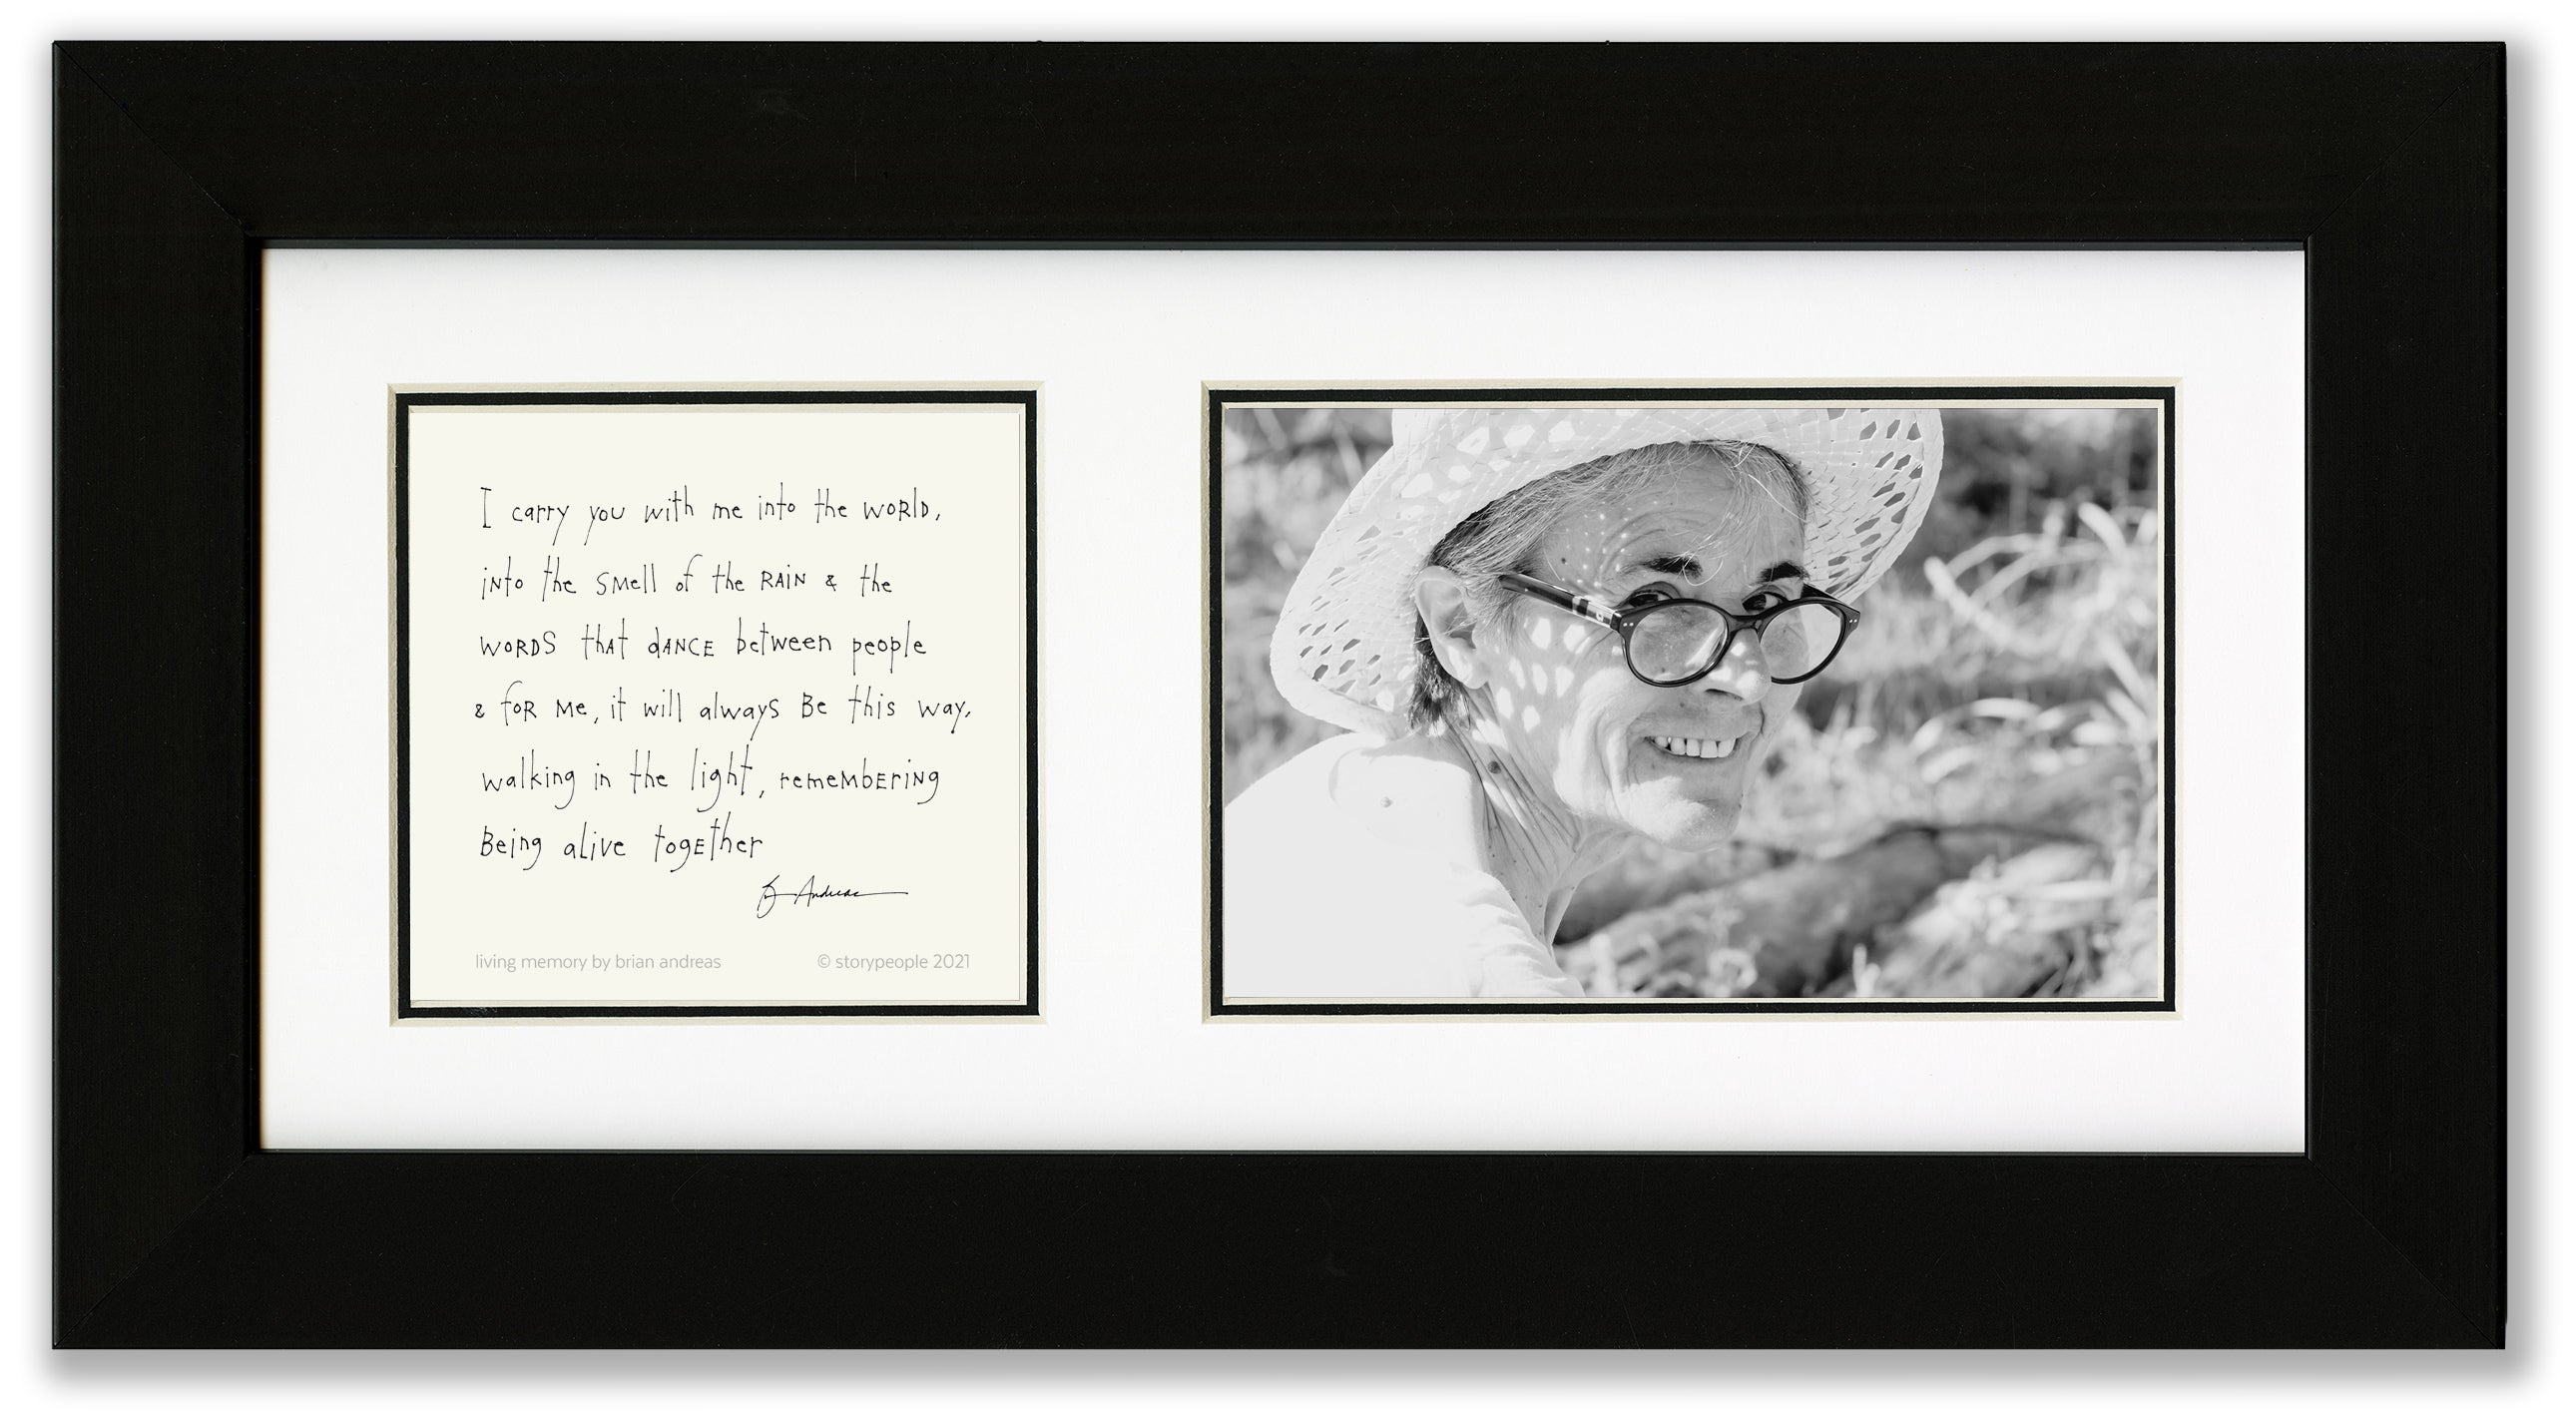 I carry you with me into the WORLD,
into the SMell of the RAIN & the
WORDS that dANCE between people
& foR Me, it will always Be this way,
walking in the light, remeMbERiNg
Being alive togEther
B Andreas
living memory by brian andreas
© storypeople 2021